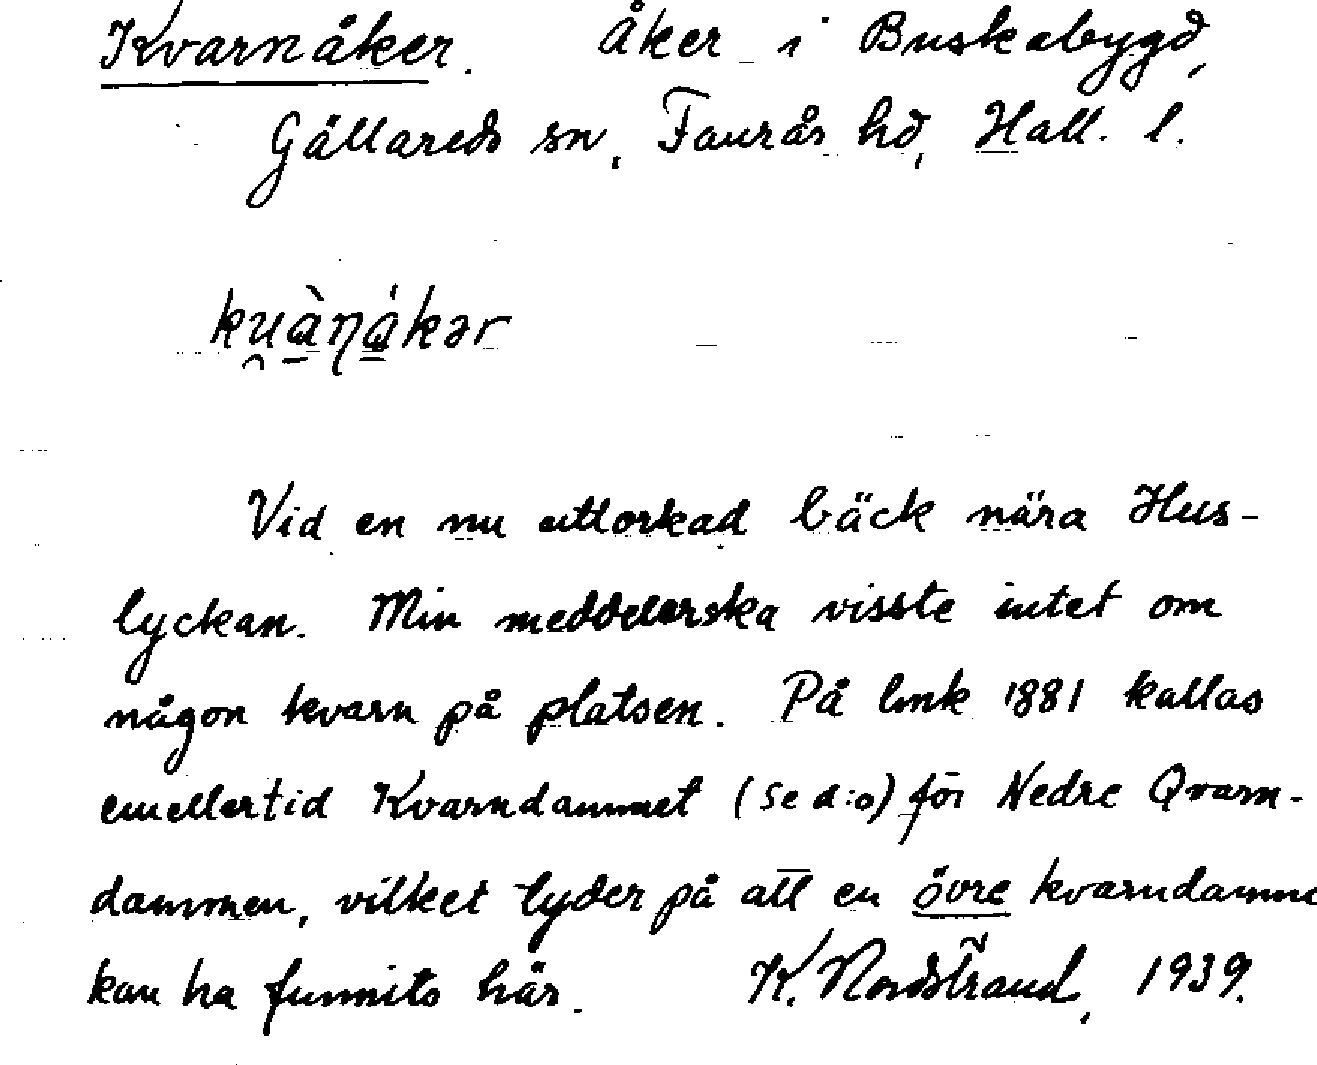 Kvarnåker. Åker i Buskabygd,
Gällareds sn, Faurås hd, Hall. l.
ku̯à̠ɳá̠kər
Vid en nu uttorkad bäck nära Hus-
lyckan. Min meddelerska visste intet om
någon kvarn på platsen. På lmk 1881 kallas
emellertid Kvarndammet (se d:o) för Nedre Qvarn-
dammen, vilket tyder på att en övre kvarndamm
kan ha funnits här. K. Nordstrand, 1939.